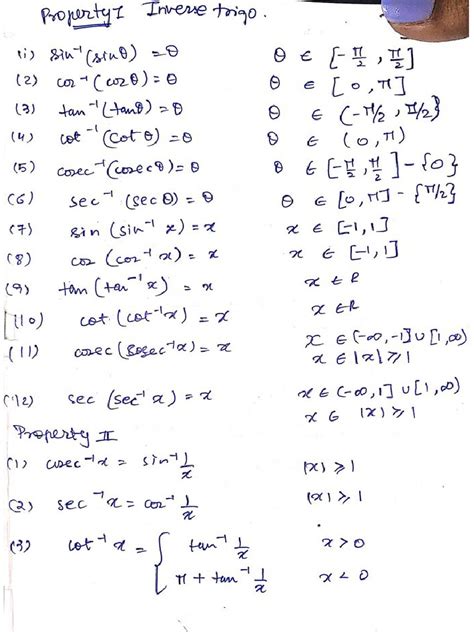 Property I Inverse trigo.
(1) sin⁻¹(sinθ) = θ θ ∈ [-π/2, π/2]
(2) cos⁻¹(cosθ) = θ θ ∈ [0, π]
(3) tan⁻¹(tanθ) = θ θ ∈ (-π/2, π/2)
(4) cot⁻¹(cotθ) = θ θ ∈ (0, π)
(5) cosec⁻¹(cosecθ) = θ θ ∈ [-π/2, π/2] - {0}
(6) sec⁻¹(secθ) = θ θ ∈ [0, π] - {π/2}
(7) sin(sin⁻¹x) = x x ∈ [-1, 1]
(8) cos(cos⁻¹x) = x x ∈ [-1, 1]
(9) tan(tan⁻¹x) = x x ∈ R
(10) cot(cot⁻¹x) = x x ∈ R
(11) cosec(cosec⁻¹x) = x x ∈ (-∞, -1] ∪ [1, ∞)
x ∈ |x| ≥ 1
(12) sec(sec⁻¹x) = x x ∈ (-∞, 1] ∪ [1, ∞)
x ∈ |x| ≥ 1
Property II
(1) cosec⁻¹x = sin⁻¹ 1/x |x| ≥ 1
(2) sec⁻¹x = cos⁻¹ 1/x |x| ≥ 1
(3) cot⁻¹x = { tan⁻¹ 1/x x > 0
π + tan⁻¹ 1/x x < 0